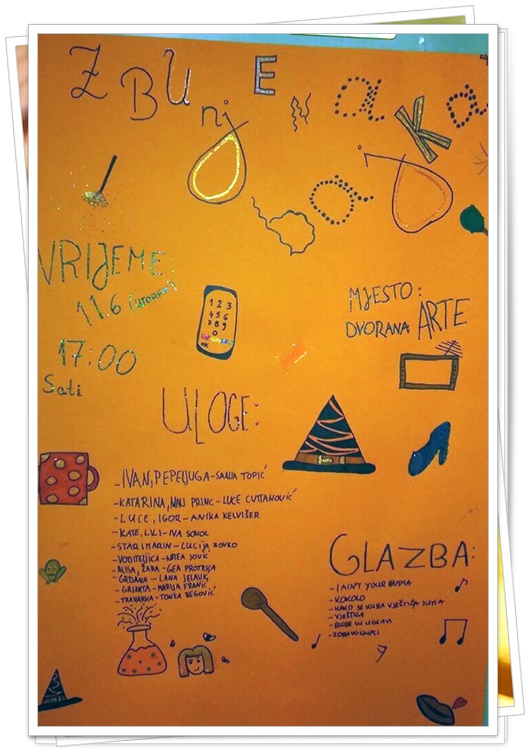 ZBUNJENA
BAJKA
VRIJEME:
11.6 (UTORAK)
17:00
Sati
MJESTO:
DVORANA ARTE
1 2 3
4 5 6
7 8 9
0
OK
ULOGE:
-IVAN, PEPELJUGA-SANJA TOPIĆ
-KATARINA, NAJ PRINC-LUCE
-LUCE, IGOR-ANIKA KELVIŠER
-KATE, LILI-IVA SOKOL
-STARI MARIN-LUCIJA ZOVKO
-VODITELJICA-MATEA JOVIĆ
-ALISA, ŽABA-GEA PROTRKA
-GRDANA-LANA JELAVIĆ
-GRIJANTA-MARIJA FRANIĆ
-TRAVARKA-TONKA BEGOVIĆ
GLAZBA:
-I AINT YOUR MAMMA
-KOKOLO
-KAKO SE KUHA VJEŠTIČJA JUHA
-VJEŠTICA
-BUBE U GLAVI
-ZDRAVO LJUDI